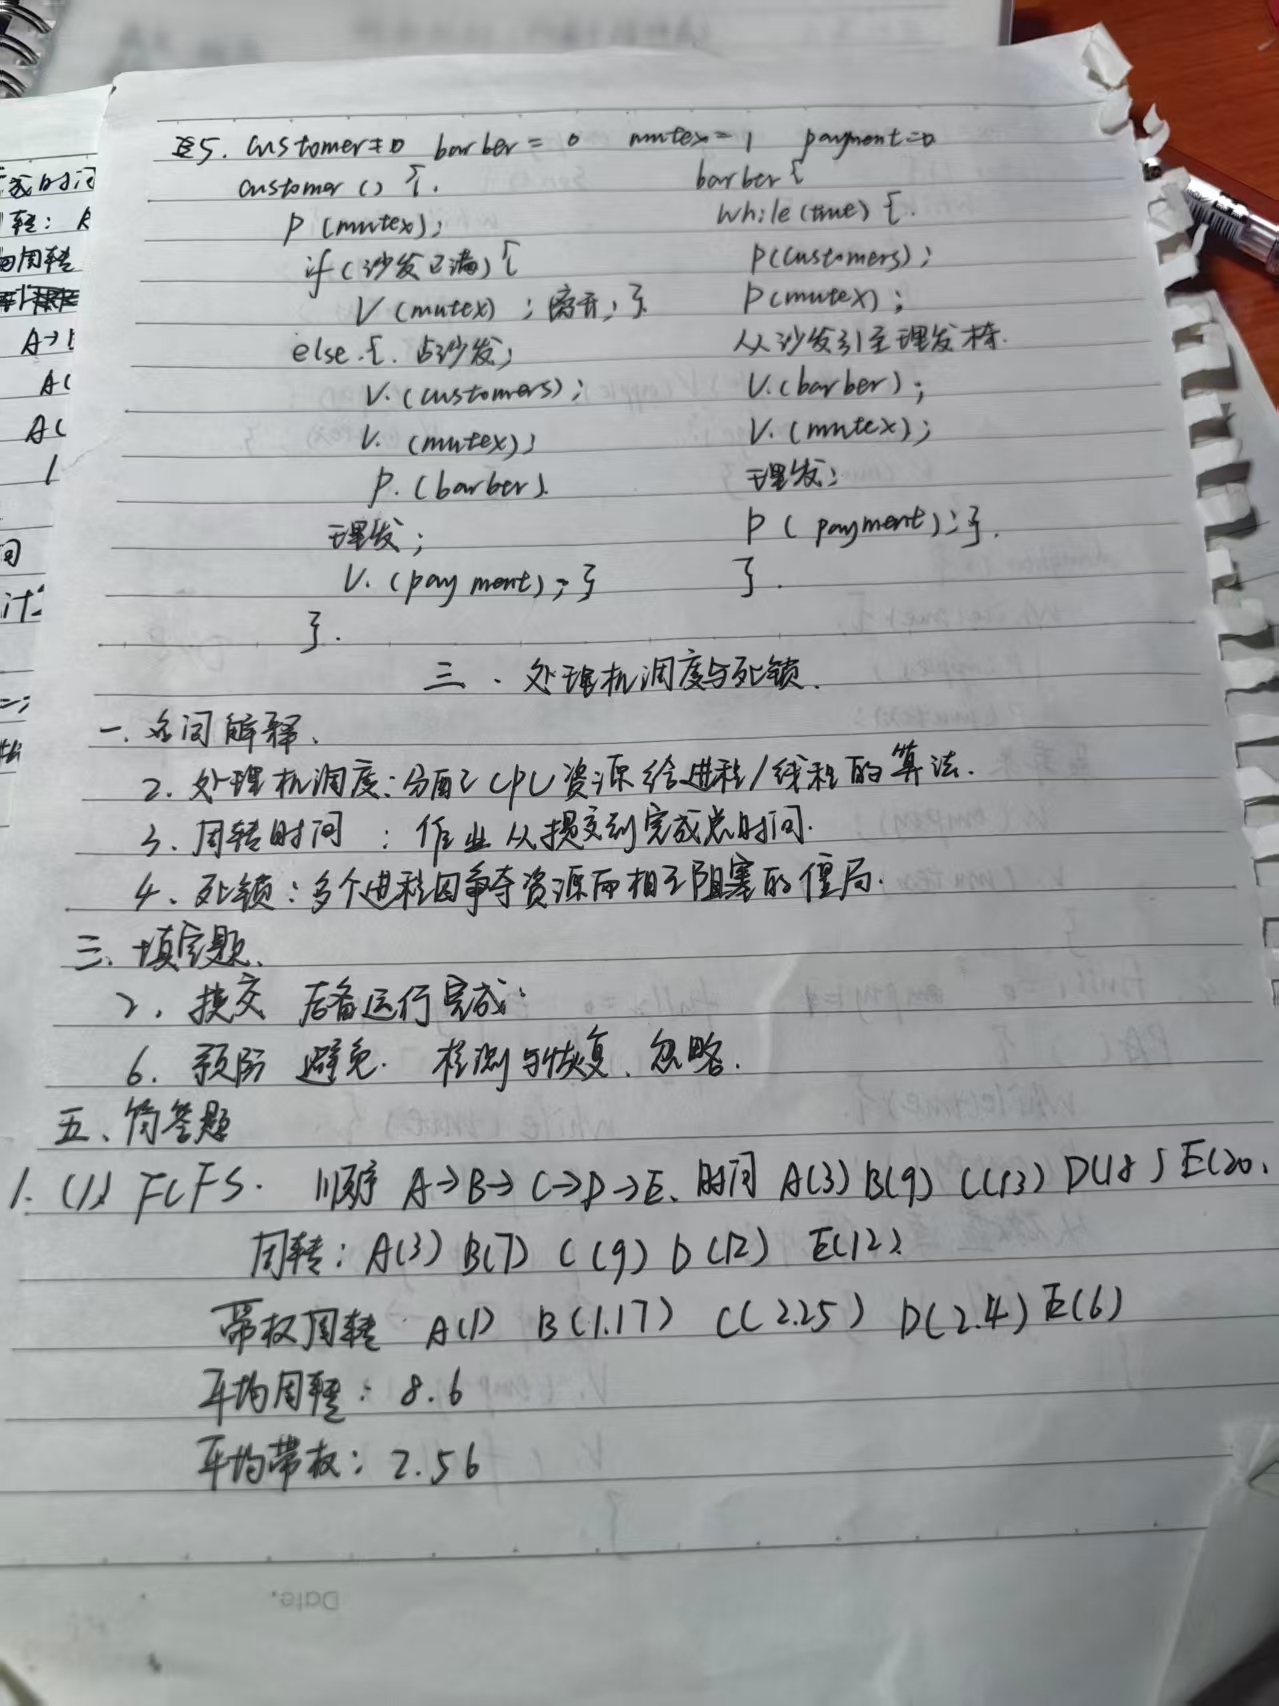 5. customer=0 barber = 0 mutex = 1 payment=0
customer () {.
P (mutex);
if (沙发已满) {
V (mutex) ; 离开; }
else {. 占沙发;
V. (customers);
V. (mutex);
P. (barber).
理发;
V. (payment); }
}.
barber {
while (true) {.
P(customers);
P(mutex);
从沙发引至理发椅.
V. (barber);
V. (mutex);
理发;
P ( payment); }.
}.
三. 处理机调度与死锁.
一. 名词解释.
2. 处理机调度: 分配CPU资源给进程/线程的算法.
3. 周转时间 : 作业从提交到完成总时间.
4. 死锁: 多个进程因争夺资源而相互阻塞的僵局.
三. 填空题.
2. 提交 后备运行完成.
6. 预防 避免. 检测与恢复. 忽略.
五、简答题
1. (1) FCFS. 顺序 A→B→C→D→E. 时间 A(3) B(9) C(13) D(18) E(20.
周转: A(3) B(7) C(9) D(12) E(12)
带权周转 A(1) B(1.17) C(2.25) D(2.4) E(6)
平均周转: 8.6
平均带权: 2.56
成时间
转: A
均周转
A→B
A(
A(
Date.